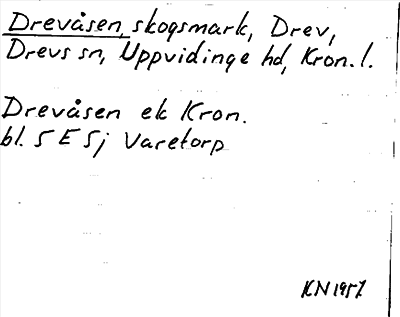 Drevåsen, skogsmark, Drev,
Drevs sn, Uppvidinge hd, Kron. l.
Drevåsen ek Kron.
bl. 5 E 5j Varetorp
KN 1957